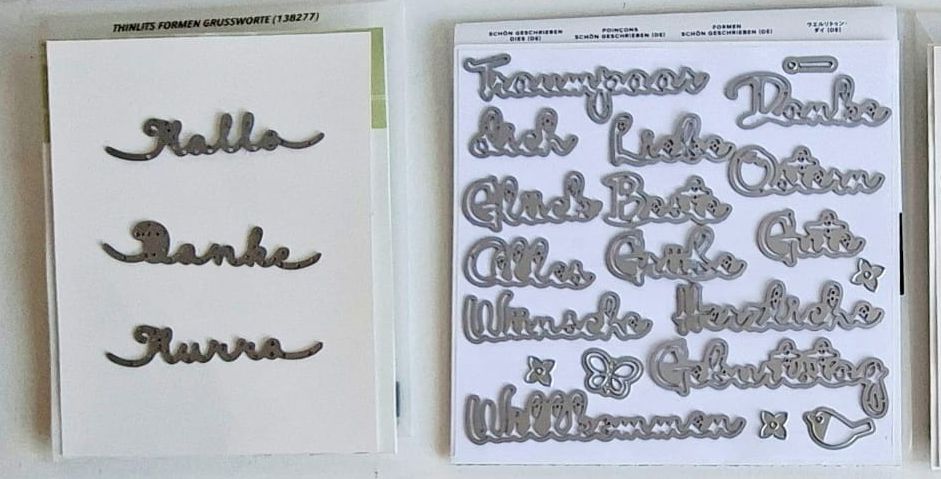 THINLITS FORMEN GRUSSWORTE (138277)
Hallo
Danke
Hurra
SCHÖN GESCHRIEBEN
DIES (DE)
POINÇONS
SCHÖN GESCHRIEBEN (DE)
FORMEN
SCHÖN GESCHRIEBEN (DE)
ダイ (DE)
Traumpaar
Danke
dich
Liebe
Ostern
Glück
Beste
Gute
Alles
Grüße
Wünsche
Herzliche
Geburtstag
Willkommen